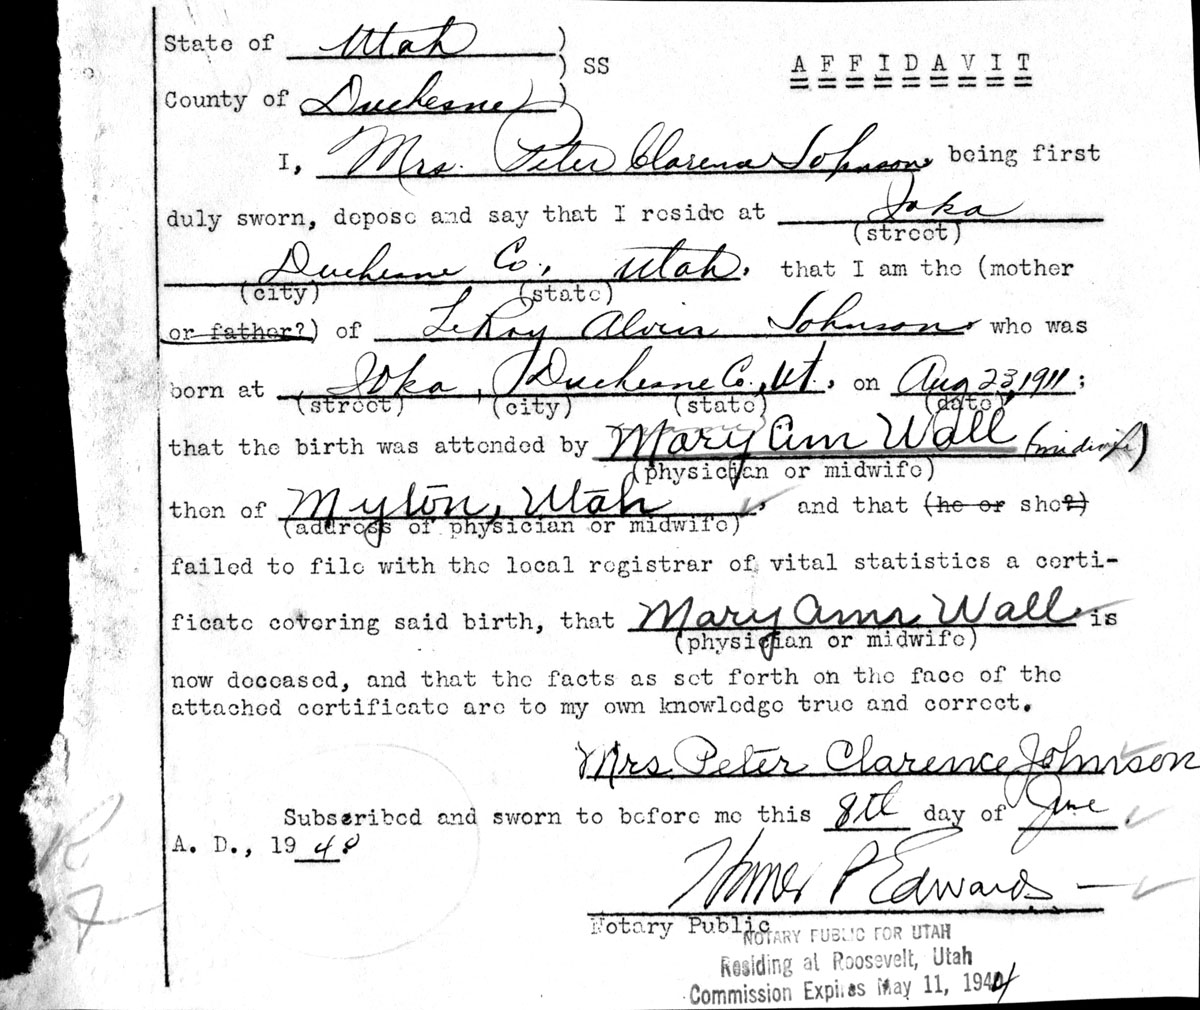 State of Utah )
) SS AFFIDAVIT
County of Duchesne )
I, Mrs. Peter Clarence Johnson being first
duly sworn, depose and say that I reside at Ioka
(street)
Duchesne Co., Utah, that I am the (mother
(city) (state)
or father?) of LeRoy Alvin Johnson who was
born at Ioka, Duchesne Co., Ut., on Aug 23, 1911;
(street) (city) (state) (date)
that the birth was attended by Mary Ann Wall (midwife)
(physician or midwife)
then of Myton, Utah, and that (he or she?)
(address of physician or midwife)
failed to file with the local registrar of vital statistics a certi-
ficate covering said birth, that Mary Ann Wall is
(physician or midwife)
now deceased, and that the facts as set forth on the face of the
attached certificate are to my own knowledge true and correct.
Mrs. Peter Clarence Johnson
Subscribed and sworn to before me this 8th day of June
A. D., 194
Homer P Edwards
Notary Public
NOTARY PUBLIC FOR UTAH
Residing at Roosevelt, Utah
Commission Expires May 11, 1944